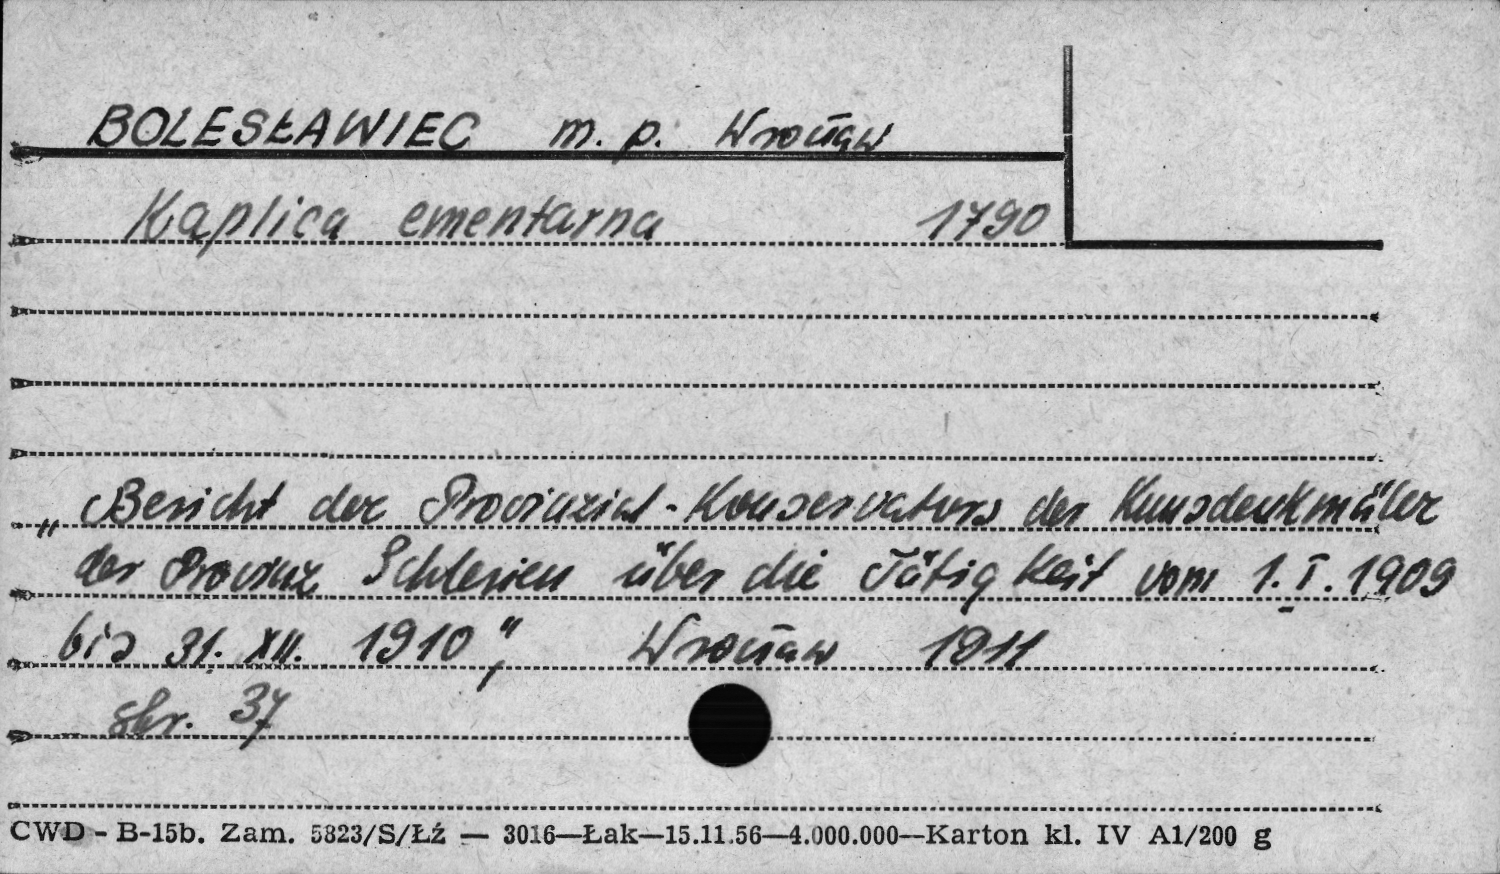 BOLESŁAWIEC m. p. Wrocław
Kaplica ementarna 1790
„Bericht der Provinzial-Konservators der Kunsdenkmäler
der Provinz Schlesien über die Tätigkeit vom 1.I.1909
bis 31. XII. 1910", Wrocław 1911
str. 37
CWD - B-15b. Zam. 5823/S/Łź — 3016—Łak—15.11.56—4.000.000—Karton kl. IV A1/200 g